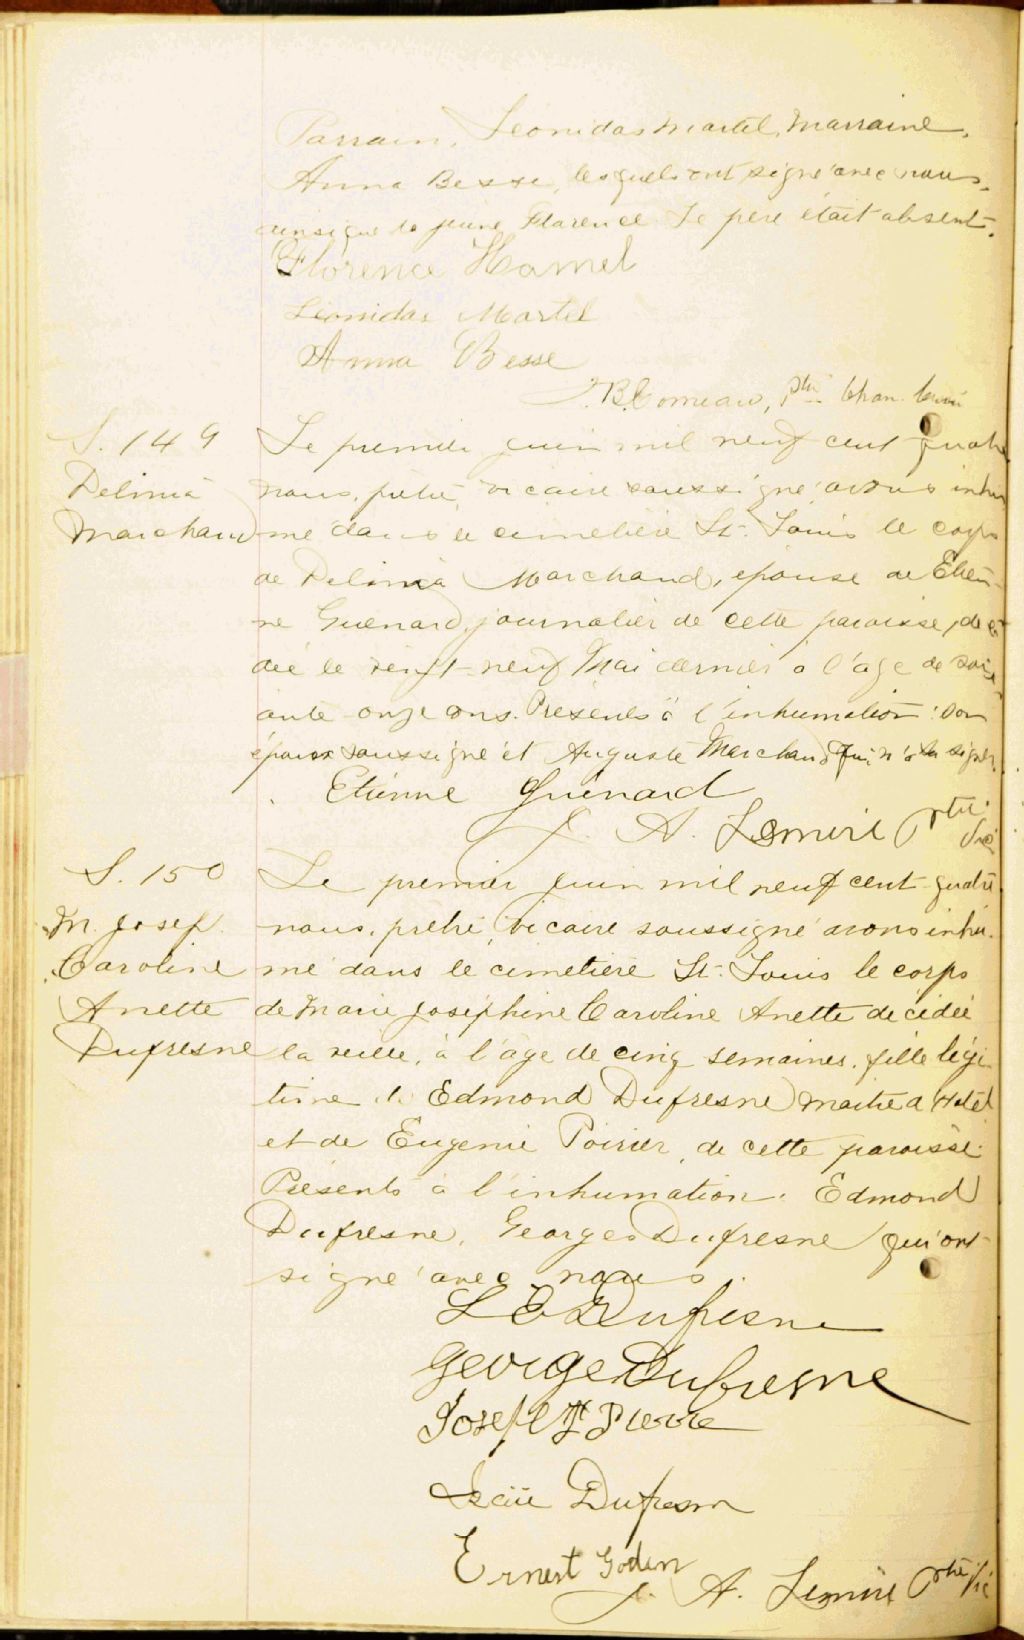 Parrain, Léonidas Martel, Marraine,
Anna Besse, lesquels ont signé avec nous,
ainsi que la jeune Florence Le père était absent.
Florence Hamel
Léonidas Martel
Anna Besse
J. B. Comeau, Ptre Chan.
S. 149
Delima
Marchand
Le premier juin mil neuf cent quatre
nous, prêtre, vicaire soussigné, avons inhu
mé dans le cimetière St. Louis le corps
de Delima Marchand, épouse de Etien-
ne Guénard, journalier de cette paroisse, dé
dée le vingt-neuf Mai dernier à l'âge de soix
ante onze ans. Présents à l'inhumation: son
époux soussigné et Auguste Marchand qui n'a su signer.
Etienne Guénard
J. A. Lemire Ptre Vic
S. 150
M. Josep.
Caroline
Anette
Dufresne
Le premier juin mil neuf cent quatre
nous, prêtre, vicaire soussigné avons inhu-
mé dans le cimetière St. Louis le corps
de Marie Joséphine Caroline Anette décédée
la veille, à l'âge de cinq semaines, fille légi-
time de Edmond Dufresne maître d'Hotel
et de Eugénie Poirier, de cette paroisse.
Présents à l'inhumation: Edmond
Dufresne, Georges Dufresne qui ont
signé avec nous.
L E Dufresne
George Dufresne
Joseph St Pierre
Isaïe Dufresne
Ernest Godin
J. A. Lemire Ptre Vic